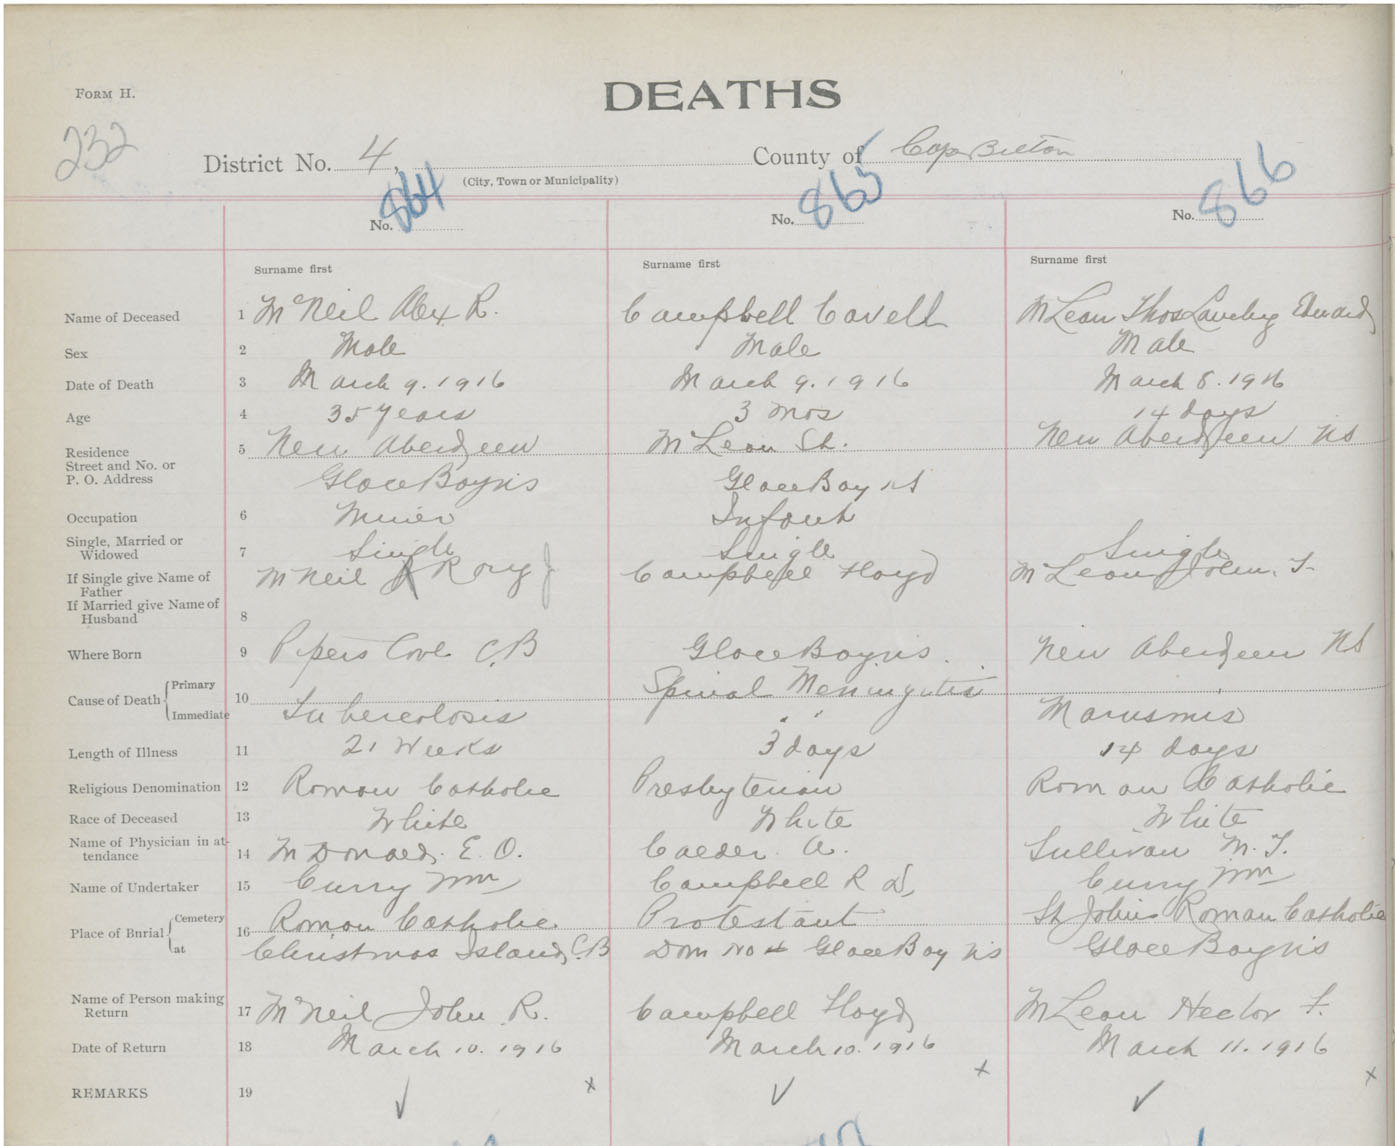 FORM H.
DEATHS
232
District No. 4,
County of Cape Breton
(City, Town or Municipality)
No. 864
No. 865
No. 866
Surname first
Surname first
Surname first
Name of Deceased 1 McNeil Alex R. Campbell Cavell McLean Thos Edward
Sex 2 Male Male Male
Date of Death 3 March 9. 1916 March 9. 1916 March 8. 1916
Age 4 35 years 3 mos 14 days
Residence 5 New Aberdeen McLean St. New Aberdeen NS
Street and No. or
P. O. Address Glace Bay NS Glace Bay NS
Occupation 6 Miner Infant
Single, Married or
Widowed 7 Single Single Single
If Single give Name of
Father McNeil Rory J Campbell Floyd McLean John. F.
If Married give Name of
Husband 8
Where Born 9 Pipers Cove C.B Glace Bay NS. New Aberdeen NS
Cause of Death Primary 10 Spinal Meningitis
Immediate Tuberculosis " " Marusmis
Length of Illness 11 21 Weeks 3 days 14 days
Religious Denomination 12 Roman Catholic Presbyterian Roman Catholic
Race of Deceased 13 White White White
Name of Physician in at-
tendance 14 McDonald. E. O. Calder. A. Sullivan M. T.
Name of Undertaker 15 Curry Wm Campbell R D, Curry Wm
Place of Burial Cemetery 16 Roman Catholic Protestant St Johns Roman Catholic
at Christmas Island, C.B Dom No 4 Glace Bay NS Glace Bay NS
Name of Person making
Return 17 McNeil John. R. Campbell Floyd McLean Hector F.
Date of Return 18 March 10. 1916 March 10. 1916 March 11. 1916
REMARKS 19 ✓ x ✓ x ✓ x